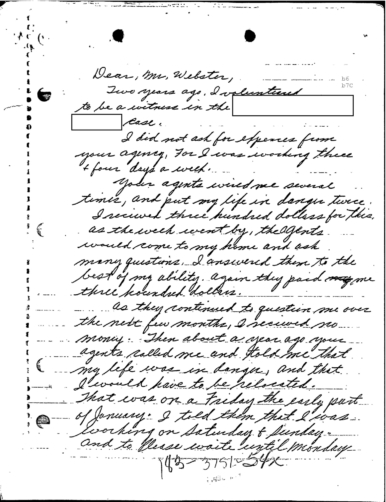 Dear, Mr. Webster,
b6
b7C
Two years ago, I volunteered
to be a witness in the
case.
I did not ask for expences from
your agency, For I was working three
& four days a week.
Your agents wired me several
times, and put my life in danger twice.
I received three hundred dollars for this.
as the week went by, the agents
would come to my home and ask
many questions. I answered them to the
best of my ability. again they paid me
three hundred dollars.
as they continued to question me over
the next few months, I received no
money. Then about a year ago your
agents called me and told me that
my life was in danger, and that
I would have to be relocated.
That was on a Friday the early part
of January. I told them that I was
working on Saturday & Sunday.
and to please waite until Monday